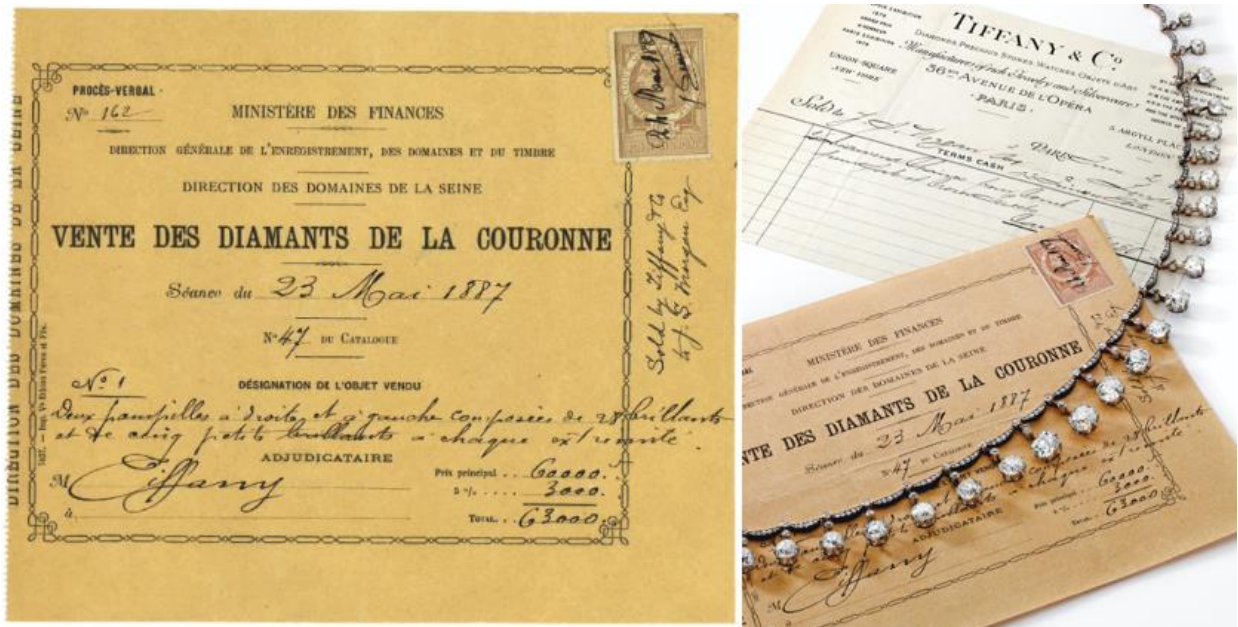 PROCÈS-VERBAL
Nº 162
MINISTÈRE DES FINANCES
DIRECTION GÉNÉRALE DE L'ENREGISTREMENT, DES DOMAINES ET DU TIMBRE
DIRECTION DES DOMAINES DE LA SEINE
VENTE DES DIAMANTS DE LA COURONNE
Séance du 23 Mai 1887
Nº 47 DU CATALOGUE
Nº 1
DÉSIGNATION DE L'OBJET VENDU
Deux pampilles à droite et à gauche composées de 28 brillants
et de cinq petits brillants à chaque extrémité
ADJUDICATAIRE
M Tiffany
à
Prix principal 60000.
5 % 3000.
TOTAL 63000.
24 Mai 1887
Sold by Tiffany & Co
to J. S. Morgan Esq
DIRECTION DES DOMAINES DE LA SEINE
TIFFANY & Co
DIAMONDS, PRECIOUS STONES, WATCHES, OBJETS D'ART
Manufacturers of rich Jewelry and Silverware
36BIS AVENUE DE L'OPÉRA
PARIS
UNION-SQUARE
NEW YORK
5 ARGYLL PLACE
LONDON
Sold to J. S. Morgan Esq
PARIS June
TERMS CASH
MINISTÈRE DES FINANCES
DIRECTION GÉNÉRALE DE L'ENREGISTREMENT, DES DOMAINES ET DU TIMBRE
DIRECTION DES DOMAINES DE LA SEINE
VENTE DES DIAMANTS DE LA COURONNE
Séance du 23 Mai 1887
Nº 47 DU CATALOGUE
de 28 brillants
à chaque extrémité
ADJUDICATAIRE
M Tiffany
Prix principal 60000.
5 % 3000.
TOTAL 63000.